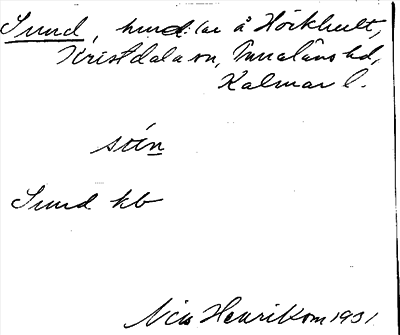 Sund, hmd:lar å Hörkhult,
Kristdala sn, Tunaläns hd,
Kalmar l.
sún
Sund kb
Nils Henrikson 1931